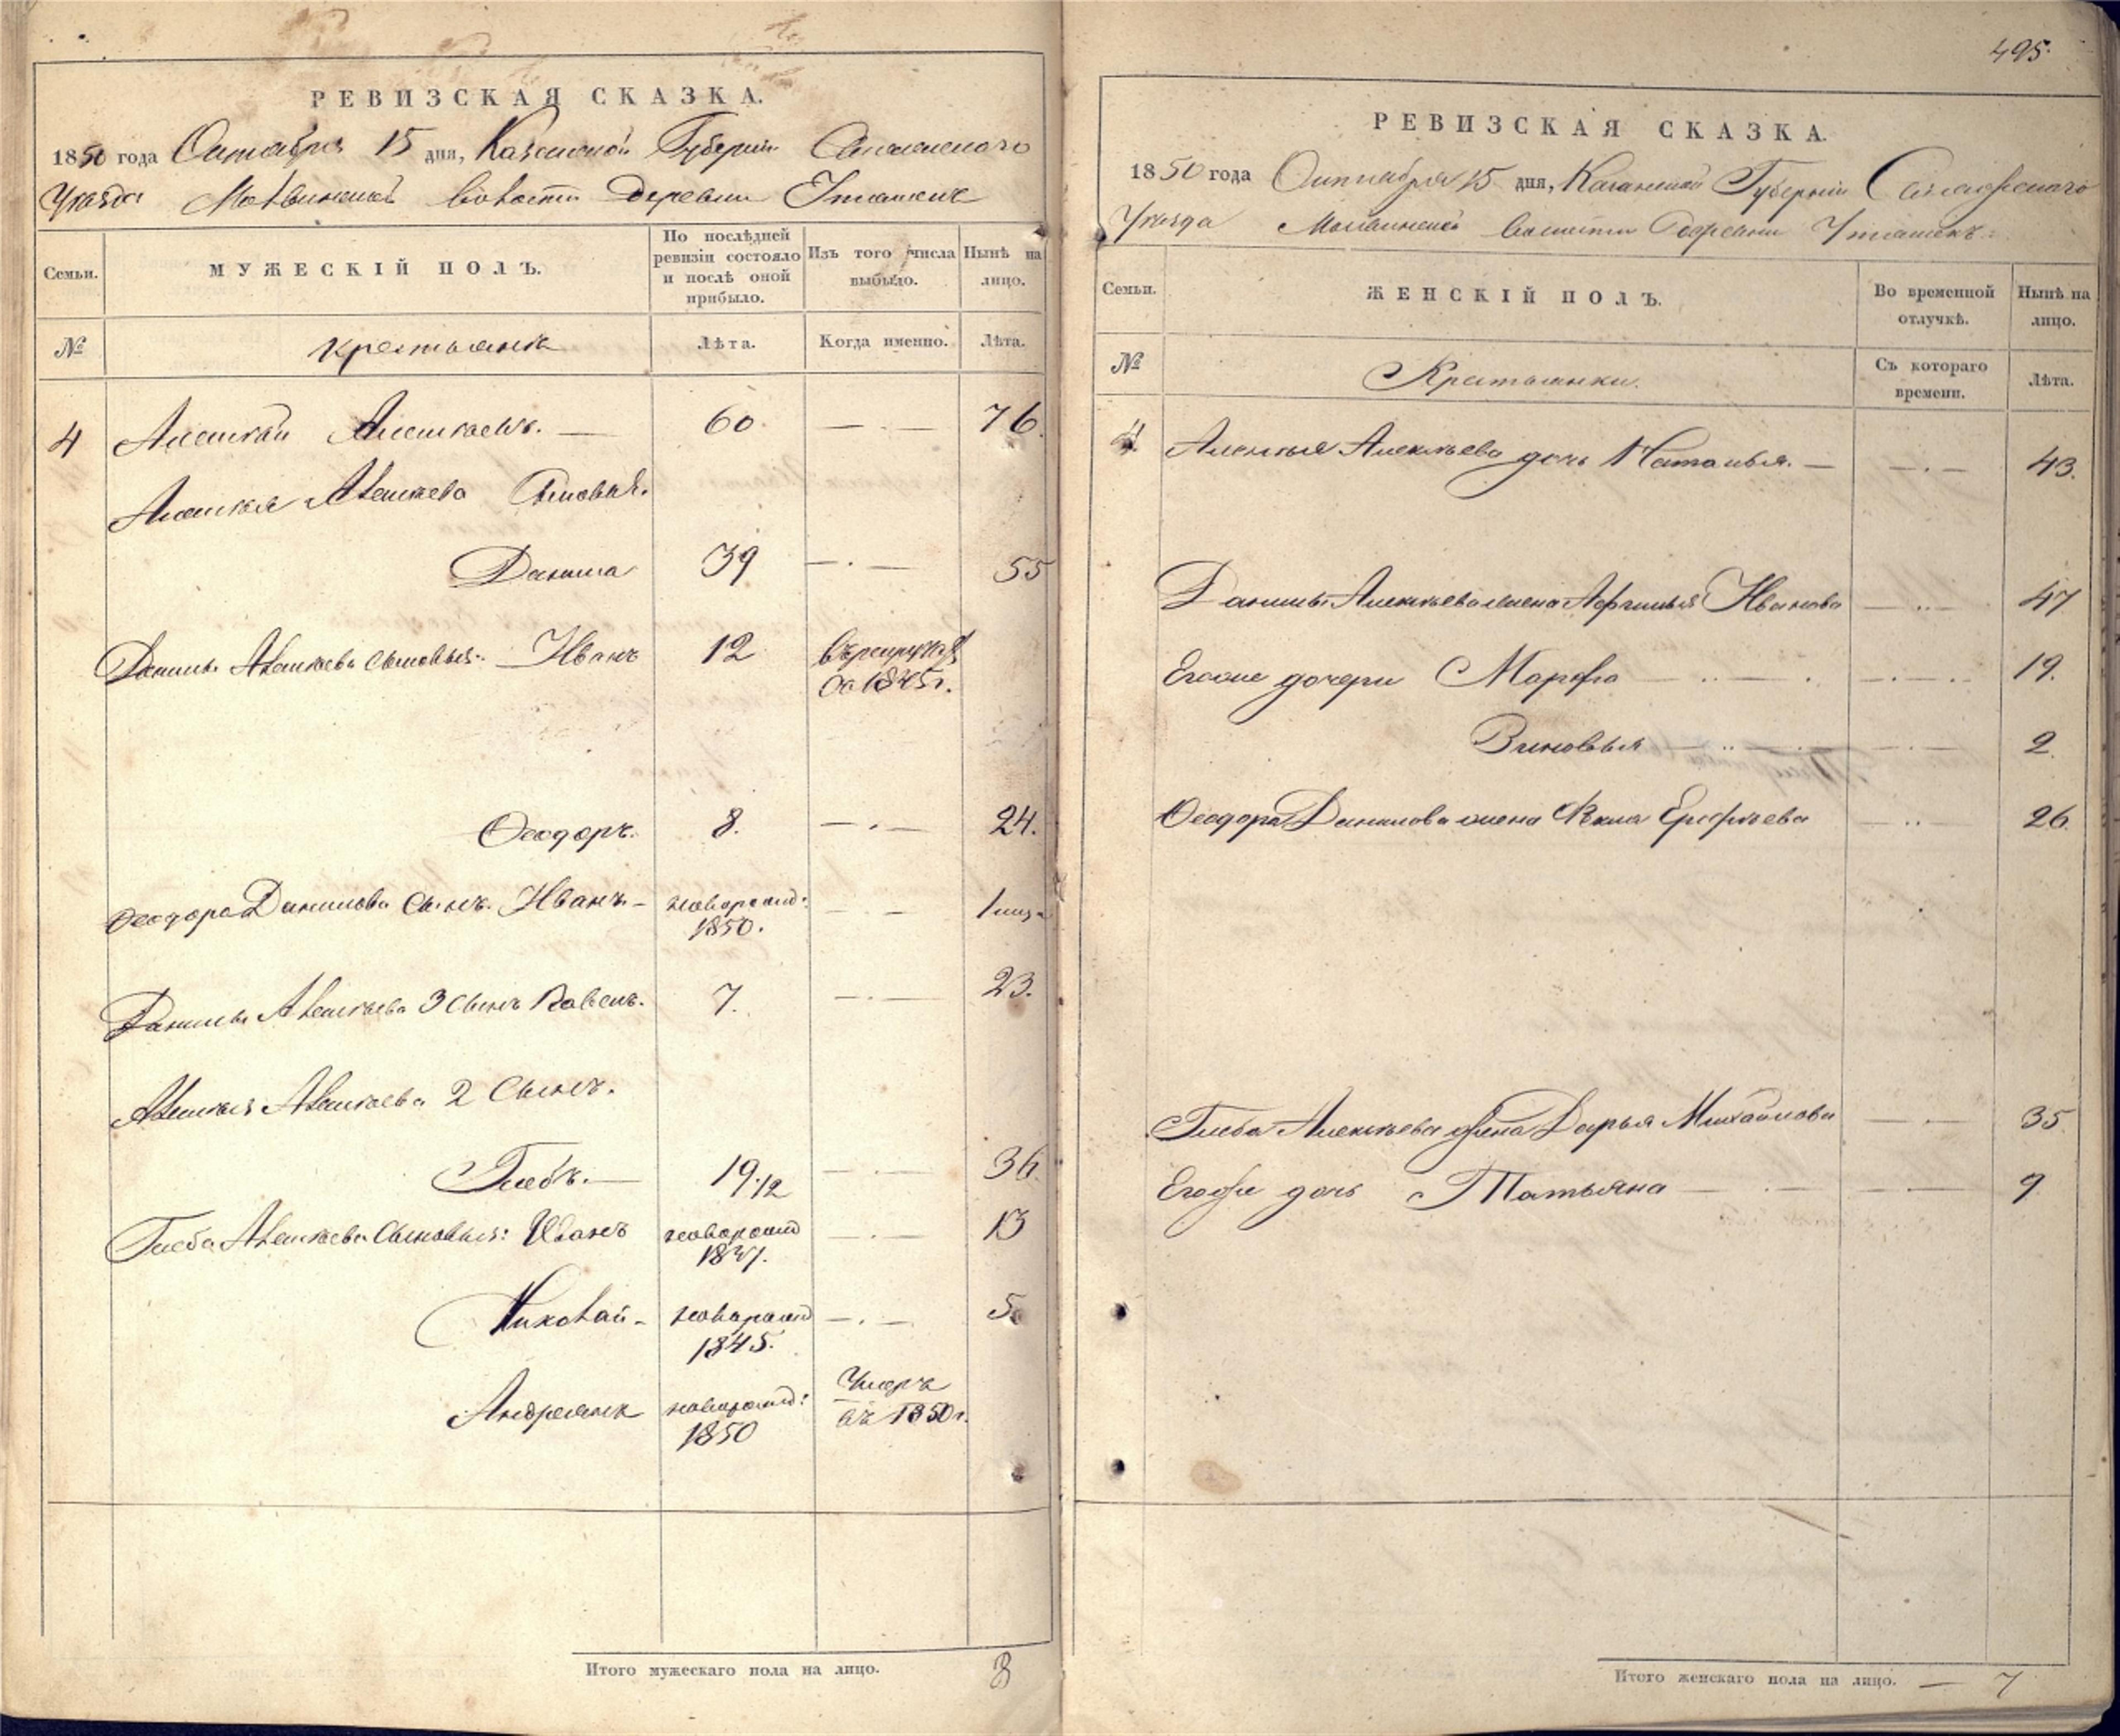 РЕВИЗСКАЯ СКАЗКА.
1850 года Октября 15 дня, Казанской Губернии Спасскаго
Уезда Молвинской Волости деревни Уташекъ
Семьи.
МУЖЕСКІЙ ПОЛЪ.
По послѣдней ревизіи состояло и послѣ оной прибыло.
Изъ того числа выбыло.
Нынѣ на лицо.
№
крестьянъ
Лѣта.
Когда именно.
Лѣта.
4 Алексѣй Алексѣевъ. — 60 — · — 76.
Алексѣя Алексѣева Сыновья.
Данила 39 — · — 55
Данилы Алексѣева сыновья: Иванъ 12 въ рекрутахъ
съ 1845 г.
Ѳеодоръ. 8. — · — 24.
Ѳеодора Данилова сынъ Иванъ — новорожд:
1850. — — 1 мѣс.
Данилы Алексѣева 3 сынъ Павелъ. 7. — · — 23.
Алексѣя Алексѣева 2 Сынъ.
Глебъ. — 19 1/2 — · — 36.
Глеба Алексѣева Сыновья: Иванъ новорожд
1837. — · — 13
Николай — новорожд
1845. — · — 5
Андреянъ новорожд:
1850 Умеръ
въ 1850 г.
Итого мужескаго пола на лицо. 8
495.
РЕВИЗСКАЯ СКАЗКА.
1850 года Октября 15 дня, Казанской Губерніи
Уезда Молвинской Волости Деревни Уташекъ.
Семьи.
ЖЕНСКІЙ ПОЛЪ.
Во временной отлучкѣ.
Нынѣ на лицо.
№
Крестьянки.
Съ котораго времени.
Лѣта.
4. Алексѣя Алексѣева дочь Наталья. — — · — 43.
Данилы Алексѣева жена Ивановa — ·· — 47
Егоже дочери Марфа — ·· — · — · — · 19.
Зиновья — ·· — · — · — 2.
Ѳеодора Данилова жена Ерофѣева — ·· 26.
Глеба Алексѣева жена Дарья Михайлова — · — 35.
Егоже дочь Татьяна — · — — · — 9
Итого женскаго пола на лицо. — 7